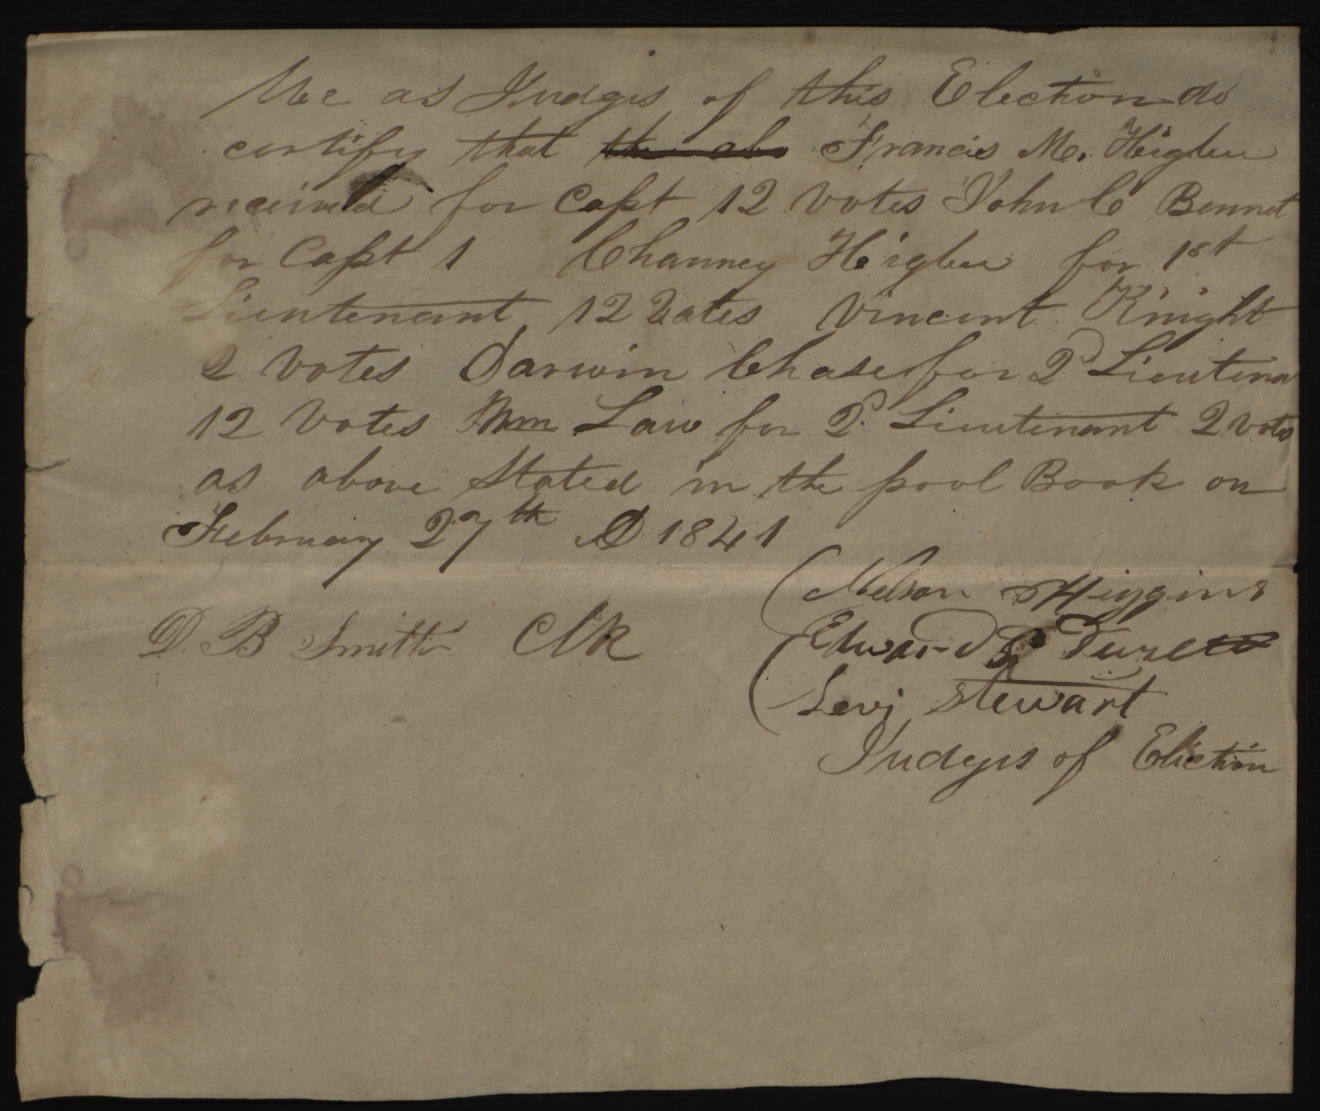 We as Judges of this Election do
certify that the abo Francis M. Higbee
received for Capt 12 votes John C Bennet
for Capt 1 Chauncy Higbee for 1st
Lieutenant 12 Votes Vincent Knight
2 votes Darwin Chase for 2d Lieutena
12 votes Wm Law for 2d Lieutenant 2 vots
as above Stated in the pool Book on
February 27th AD 1841
Nelson Higgins
D. B Smith Clk
Edward
Levi Stewart
Judges of Election